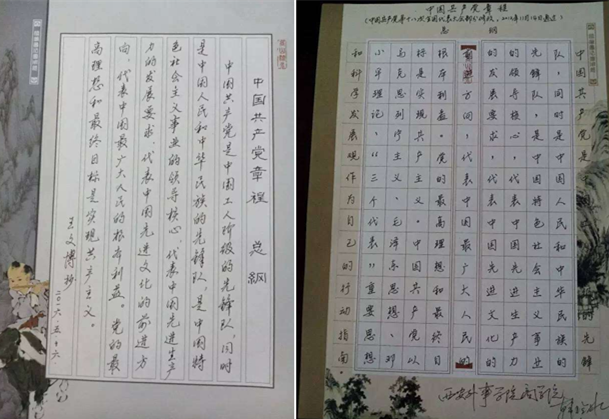 中国共产党章程 总纲
中国共产党是中国工人阶级的先锋队,同时
是中国人民和中华民族的先锋队,是中国特
色社会主义事业的领导核心,代表中国先进生产
力的发展要求,代表中国先进文化的前进方
向,代表中国最广大人民的根本利益。党的最
高理想和最终目标是实现共产主义。
王文博抄 二〇一六.五.十六.
中国共产党章程
(中国共产党第十八次全国代表大会部分修改,2012年11月14日通过)
总纲
中国共产党是 先锋
队,同时是中国人民和中华民族的
先锋队,是中国特色社会主义事业
的领导核心,代表中国先进生产力
的发展要求,代表中国先进文化的
前进方向,代表中国最广大人民的
根本利益。党的最高理想和最终目
标是实现共产主义。
马克思列宁主义、毛泽东思想、邓
小平理论、“三个代表”重要思想
和科学发展观作为自己的行动指南